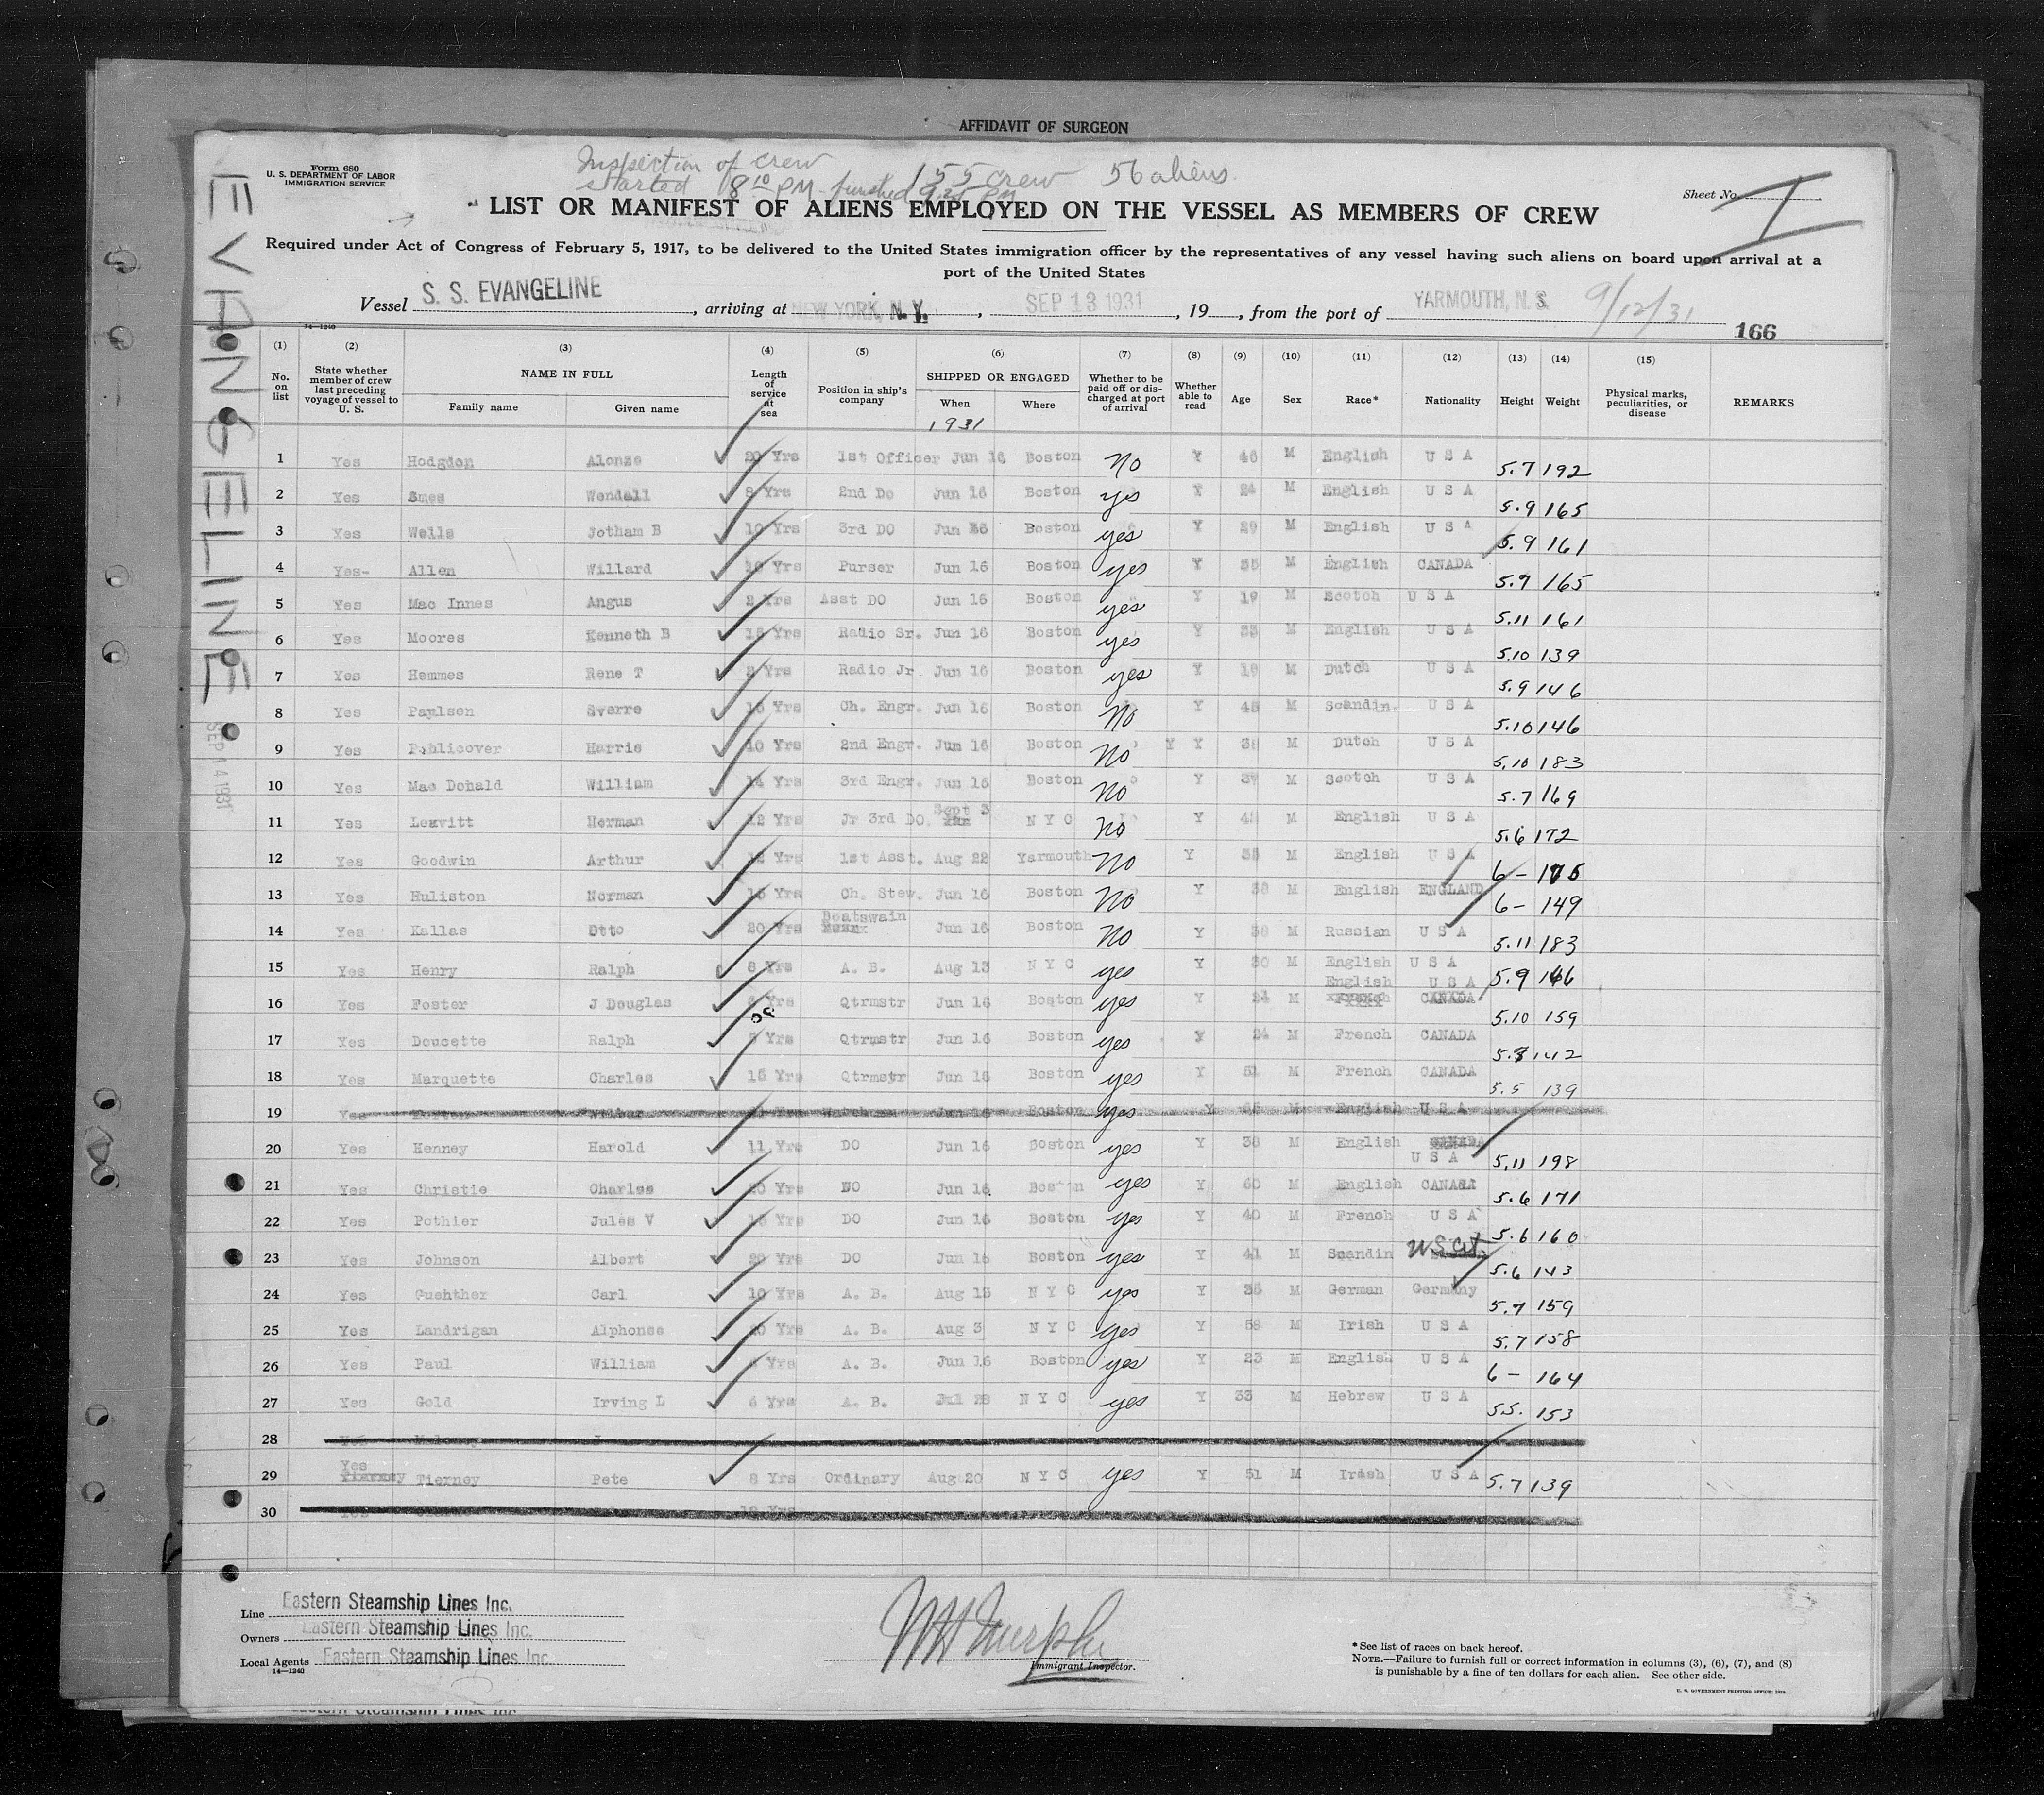 AFFIDAVIT OF SURGEON
Form 680
U. S. DEPARTMENT OF LABOR
IMMIGRATION SERVICE
Inspection of crew 155 crew 56 aliens
started 8 10 PM - finished 9.25 PM
Sheet No. 1
LIST OR MANIFEST OF ALIENS EMPLOYED ON THE VESSEL AS MEMBERS OF CREW
Required under Act of Congress of February 5, 1917, to be delivered to the United States immigration officer by the representatives of any vessel having such aliens on board upon arrival at a
port of the United States
Vessel S. S. EVANGELINE, arriving at NEW YORK, N. Y., SEP 13 1931, 19, from the port of YARMOUTH, N. S. 9/12/31
14—1240
166
EVANGELINE
SEP 14 1931
(1) (2) (3) (4) (5) (6) (7) (8) (9) (10) (11) (12) (13) (14) (15)
No. on list | State whether member of crew last preceding voyage of vessel to U. S. | NAME IN FULL Family name Given name | Length of service at sea | Position in ship's company | SHIPPED OR ENGAGED When Where | Whether to be paid off or discharged at port of arrival | Whether able to read | Age | Sex | Race* | Nationality | Height | Weight | Physical marks, peculiarities, or disease | REMARKS
1931
1 Yes Hodgdon Alonzo 20 Yrs 1st Officer Jun 16 Boston No Y 46 M English U S A 5.7 192
2 Yes Smes Wendell 8 Yrs 2nd Do Jun 16 Boston yes Y 24 M English U S A 5.9 165
3 Yes Wells Jotham B 10 Yrs 3rd DO Jun 16 Boston yes Y 29 M English U S A 5.9 161
4 Yes- Allen Willard 10 Yrs Purser Jun 16 Boston yes Y 35 M English CANADA 5.7 165
5 Yes Mac Innes Angus 2 Yrs Asst DO Jun 16 Boston yes Y 19 M Scotch U S A 5.11 161
6 Yes Moores Kenneth B 15 Yrs Radio Sr. Jun 16 Boston yes Y 33 M English U S A 5.10 139
7 Yes Hemmes Rene T Yrs Radio Jr Jun 16 Boston yes Y 19 M Dutch U S A 5.9 146
8 Yes Paulsen Sverre 15 Yrs Ch. Engr. Jun 16 Boston No Y 45 M Scandin. U S A 5.10 146
9 Yes Publicover Harris 10 Yrs 2nd Engr. Jun 16 Boston No Y Y M Dutch U S A 5.10 183
10 Yes Mac Donald William 14 Yrs 3rd Engr. Jun 16 Boston No Y M Scotch U S A 5.7 169
11 Yes Leavitt Herman 12 Yrs Jr 3rd DO. Sept 3 N Y C No Y M English U S A 5.6 172
12 Yes Goodwin Arthur Yrs 1st Asst. Aug 22 Yarmouth No Y 35 M English U S A 6 - 175
13 Yes Huliston Norman 15 Yrs Ch. Stew. Jun 16 Boston No Y 38 M English ENGLAND 6 - 149
14 Yes Kallas Otto 20 Yrs Boatswain Jun 16 Boston No Y 38 M Russian U S A 5.11 183
15 Yes Henry Ralph 8 Yrs A. B. Aug 13 N Y C yes Y 30 M English U S A 5.9 146
16 Yes Foster J Douglas 6 Yrs Qtrmstr Jun 16 Boston yes Y 24 M English French U S A CANADA 5.10 159
17 Yes Doucette Ralph Yrs Qtrmstr Jun 16 Boston yes Y 24 M French CANADA 142
18 Yes Marquette Charles 15 Yrs Qtrmstr Jun 16 Boston yes Y 51 M French CANADA 5.5 139
19 Yes Wilbur Yrs Watchman Jun 16 Boston yes Y M English U S A
20 Yes Kenney Harold 11 Yrs DO Jun 16 Boston yes Y 38 M English CANADA U S A 5.11 198
21 Yes Christie Charles 20 Yrs DO Jun 16 Boston yes Y 60 M English CANADA 5.6 171
22 Yes Pothier Jules V 15 Yrs DO Jun 16 Boston yes Y 40 M French U S A 5.6 160
23 Yes Johnson Albert 20 Yrs DO Jun 16 Boston yes Y 41 M Scandin US cit 5.6 143
24 Yes Guehther Carl 10 Yrs A. B. Aug 13 N Y C yes Y 35 M German Germany 5.7 159
25 Yes Landrigan Alphonse 20 Yrs A. B. Aug 3 N Y C yes Y 58 M Irish U S A 5.7 158
26 Yes Paul William Yrs A. B. Jun 16 Boston yes Y 23 M English U S A 6 - 164
27 Yes Gold Irving L 6 Yrs A. B. Jul 28 N Y C yes Y 33 M Hebrew U S A 5.5. 153
28 Yes Moloney J
29 Yes Tierney Tierney Pete 8 Yrs Ordinary Aug 20 N Y C yes Y 51 M Irish U S A 5.7 139
30 Yes Yrs
Line Eastern Steamship Lines Inc.
Owners Eastern Steamship Lines Inc.
Local Agents Eastern Steamship Lines Inc.
14—1240
W H Murphy
Immigrant Inspector.
*See list of races on back hereof.
NOTE.—Failure to furnish full or correct information in columns (3), (6), (7), and (8)
is punishable by a fine of ten dollars for each alien. See other side.
U. S. GOVERNMENT PRINTING OFFICE:
Eastern Steamship Lines Inc.